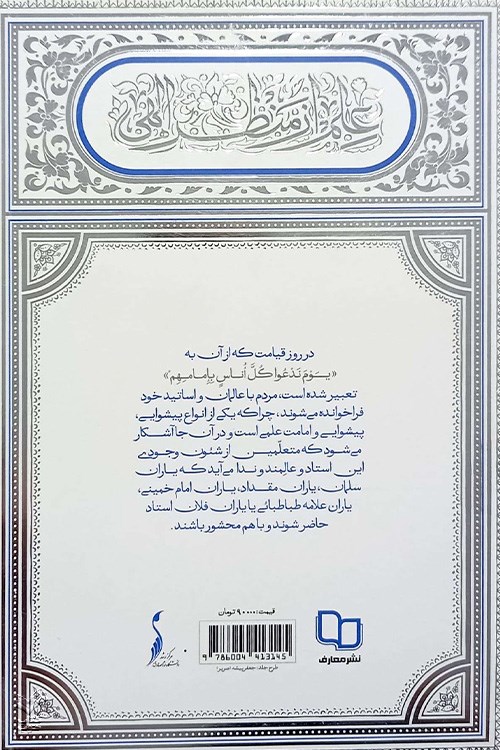 علم از منظر الهی
در روز قیامت که از آن به
«یَومَ نَدعُوا کُلَّ اُناسٍ بِإمامِهِم»
تعبیر شده است، مردم با عالمان و اساتید خود
فراخوانده می‌شوند، چرا که یکی از انواع پیشوایی،
پیشوایی و امامت علمی است و در آن جا آشکار
می‌شود که متعلّمین از شئون وجودی
این استاد و عالمند و ندا می‌آید که یاران
سلمان، یاران مقداد، یاران امام خمینی،
یاران علامه طباطبائی یا یاران فلان استاد
حاضر شوند و با هم محشور باشند.
قیمت: ۹۰۰۰۰ تومان
9 786004 413145
نشر معارف